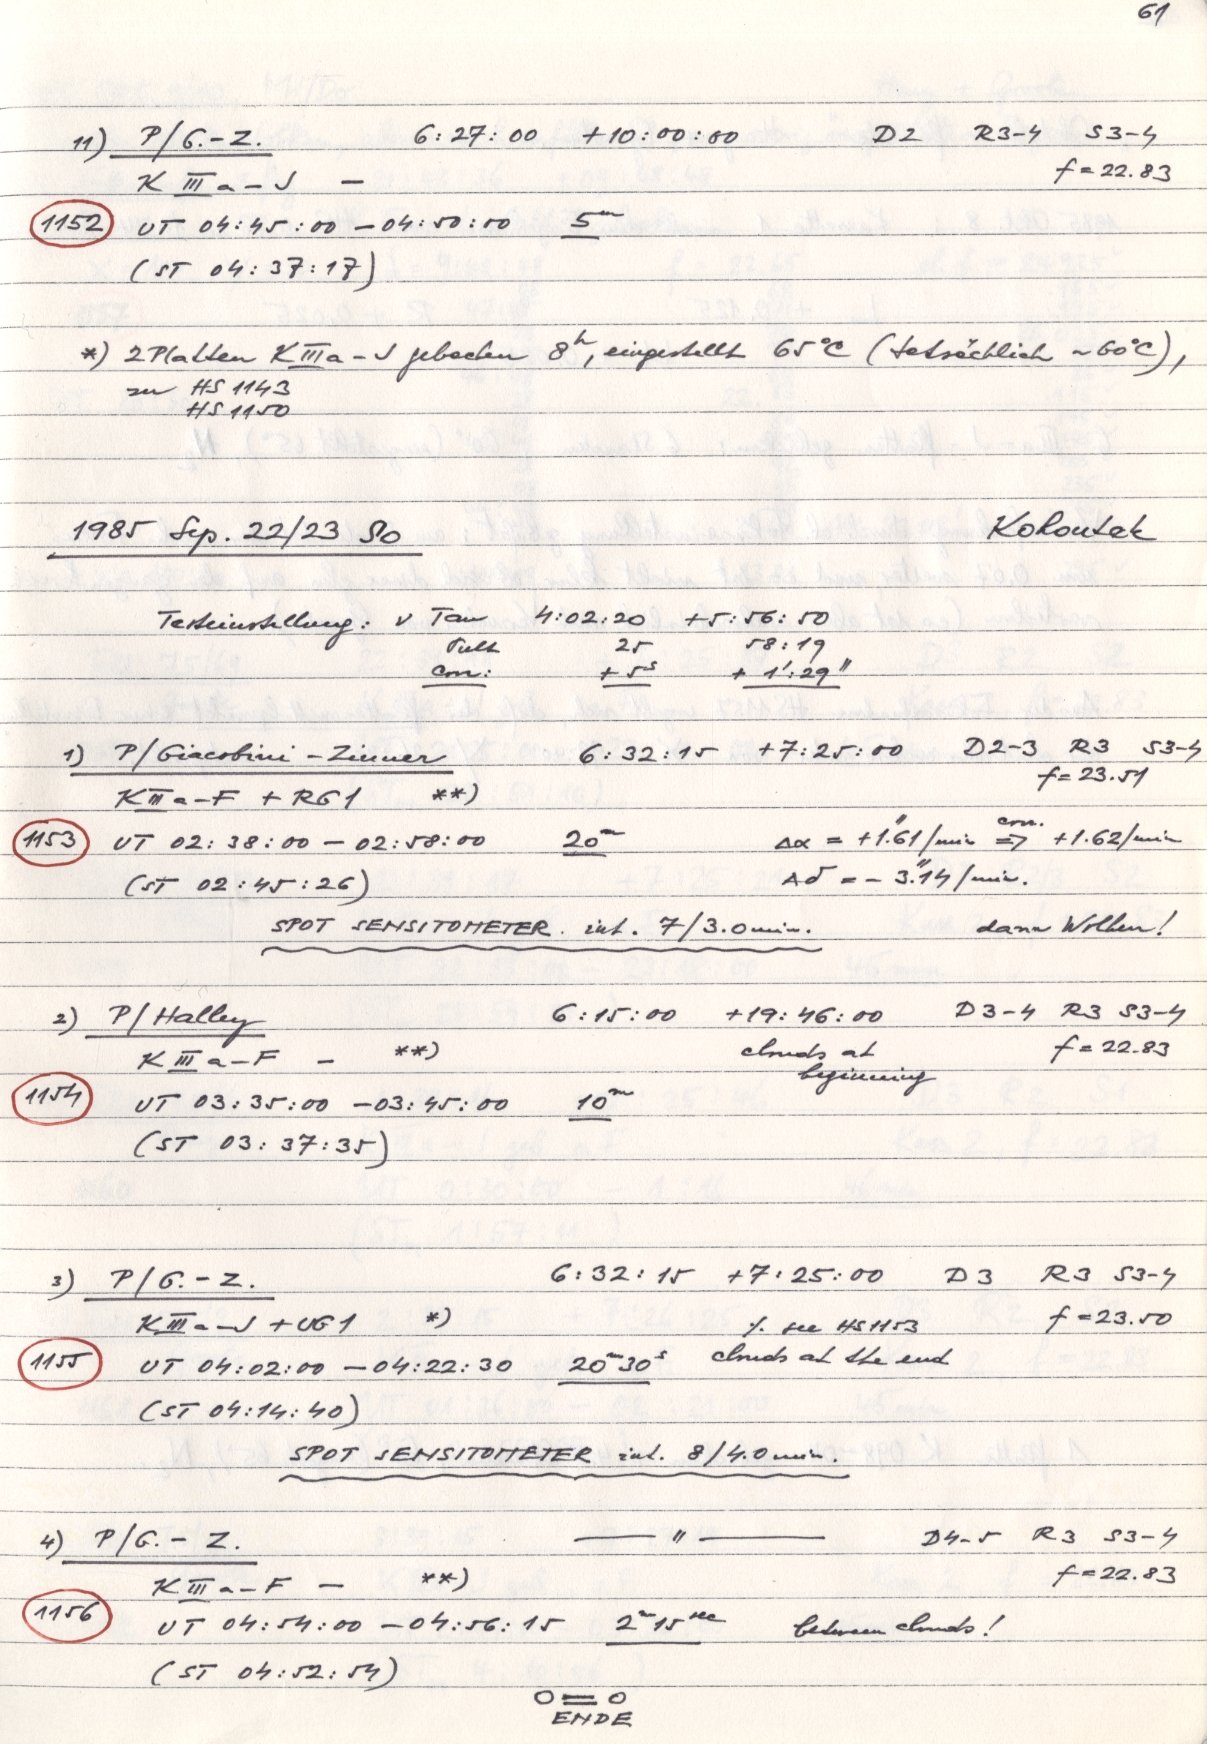 61
11) P/G.-Z. 6:27:00 +10:00:00 D2 R3-4 S3-4
K III a-J — f=22.83
1152 UT 04:45:00 - 04:50:00 5m
(ST 04:37:17)
*) 2 Platten K III a-J gebacken 8h, eingestellt 65°C (tatsächlich ~60°C),
zu HS 1143
HS 1150
1985 Sep. 22/23 So Kohoutek
Testeinstellung: ν Tau 4:02:20 +5:56:50
Pult 25 58:19
corr: +5s +1':29"
1) P/Giacobini-Zinner 6:32:15 +7:25:00 D2-3 R3 S3-4
f=23.51
K III a-F + RG1 **)
1153 UT 02:38:00 - 02:58:00 20m Δα = +1".61/min corr. => +1.62/min
(ST 02:45:26) Δδ = -3".14/min.
SPOT SENSITOMETER int. 7/3.0 min. dann Wolken!
2) P/Halley 6:15:00 +19:46:00 D3-4 R3 S3-4
K III a-F — **) clouds at f=22.83
beginning
1154 UT 03:35:00 - 03:45:00 10m
(ST 03:37:35)
3) P/G.-Z. 6:32:15 +7:25:00 D3 R3 S3-4
K III a-J + UG1 *) ٪ see HS1153 f=23.50
1155 UT 04:02:00 - 04:22:30 20m30s clouds at the end
(ST 04:14:40)
SPOT SENSITOMETER int. 8/4.0 min.
4) P/G.-Z. — " — D4-5 R3 S3-4
K III a-F — **) f=22.83
1156 UT 04:54:00 - 04:56:15 2m15sec between clouds!
(ST 04:52:54)
ENDE